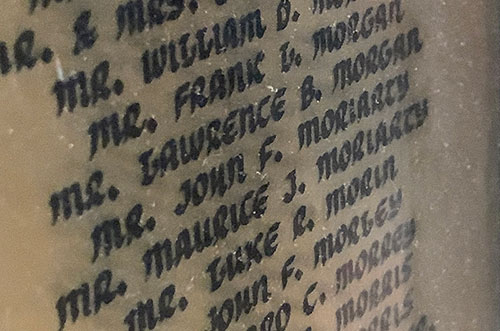 MR. & MRS.
MR. WILLIAM D.
MR. FRANK L. MORGAN
MR. LAWRENCE B. MORGAN
MR. JOHN F. MORIARTY
MR. MAURICE J. MORIARTY
MR. LUKE R. MORIN
JOHN F. MORLEY
C. MORREY
MORRIS